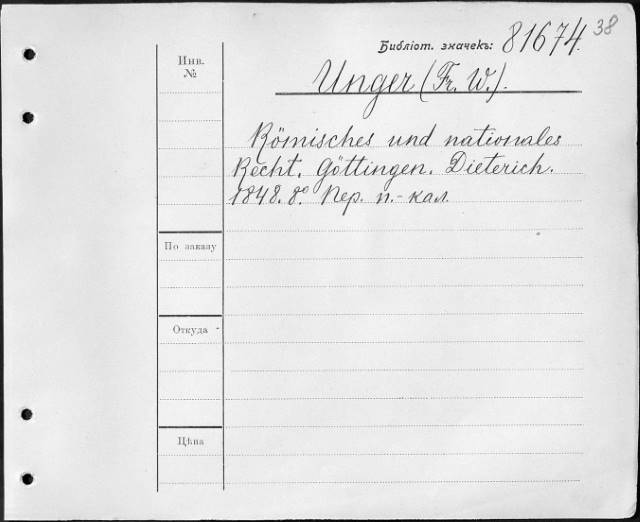 38
Библіот. значекъ: 81674.
Инв.
№
Unger (Fr. W.).
Römisches und nationales
Recht. Göttingen. Dieterich.
1848. 8º. Пер. п.-кал.
По заказу
Откуда
Цѣна